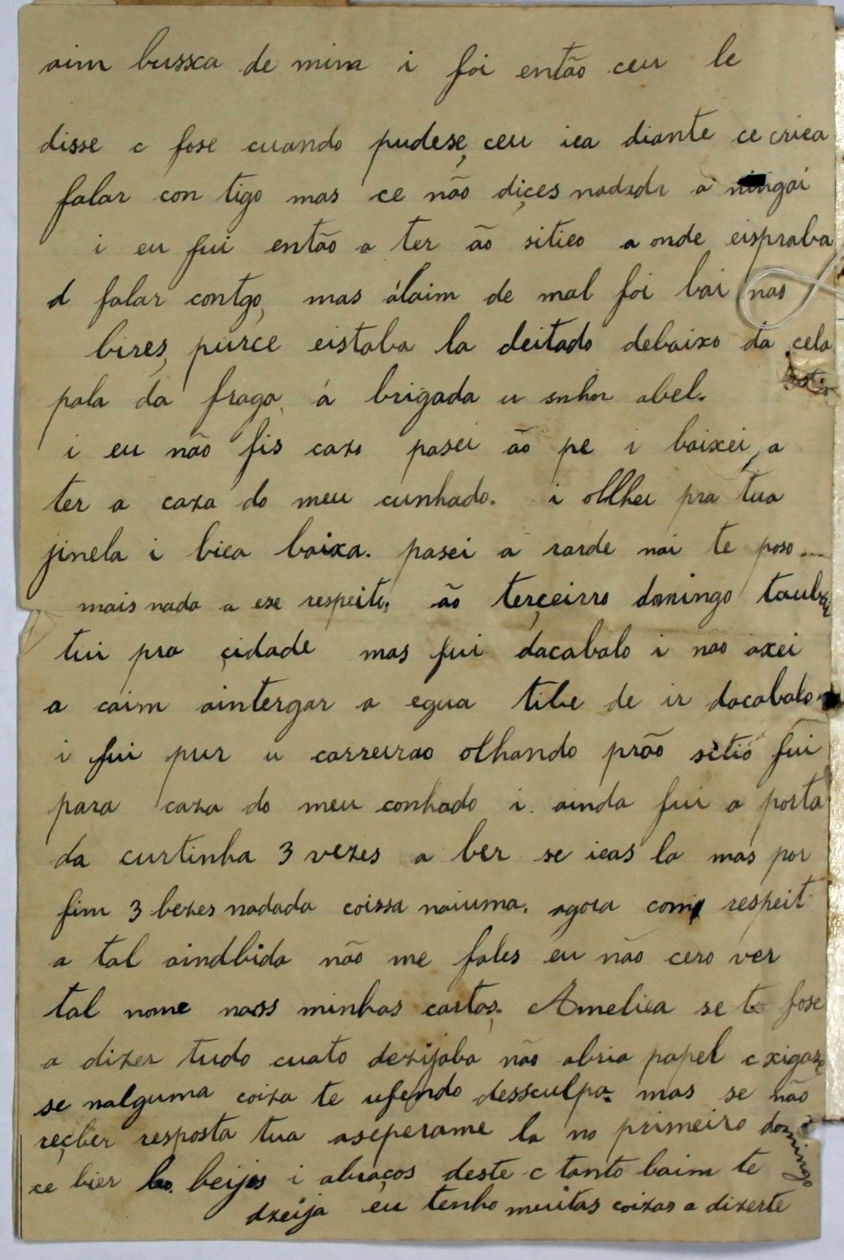 aim bussca de mim i foi então ceu le
disse c fose cuando pudese, ceu iea diante ce criea
falar con tigo mas ce não diçes nadada a ningai
i eu fui então a ter ão sitieo a onde eispraba
d falar contgo, mas álaim de mal foi bai nas
bires, purce eistaba la deitado debaixo da cela
pala da fraga. á brigada u snhor abel.
i eu não fis cazo pasei ão pe i baixei, a
ter a caza do meu cunhado. i ollhei pra tua
jinela i biea baixa. pasei a rarde nai te poso...
mais nada a ese respeito, ão terçeirro domingo
tui pra çidade mas fui dacabalo i nao axei
a caim aintergar a egua tibe de ir dacabalo
i fui pur u carreirao olhando prão sitió fui
para caza do meu conhado i. ainda fui a porta
da curtinha 3 vezes a ber se ieas la mas por
fim 3 bezes nadada coizsa naiuma. agora com respeit
a tal aindbida não me fales eu não cero ver
tal nome nass minhas cartas. Ameliea se te fose
a dizer tudo cuato dezijaba não abria papel cxigase
se nalguma coiza te ufendo dessculpa. mas se não
reçber resposta tua aseperame la no primeiro domingo
ce bier beijos i abraços deste c tanto baim te
dzeija eu tenho muitas coizas a dizerte